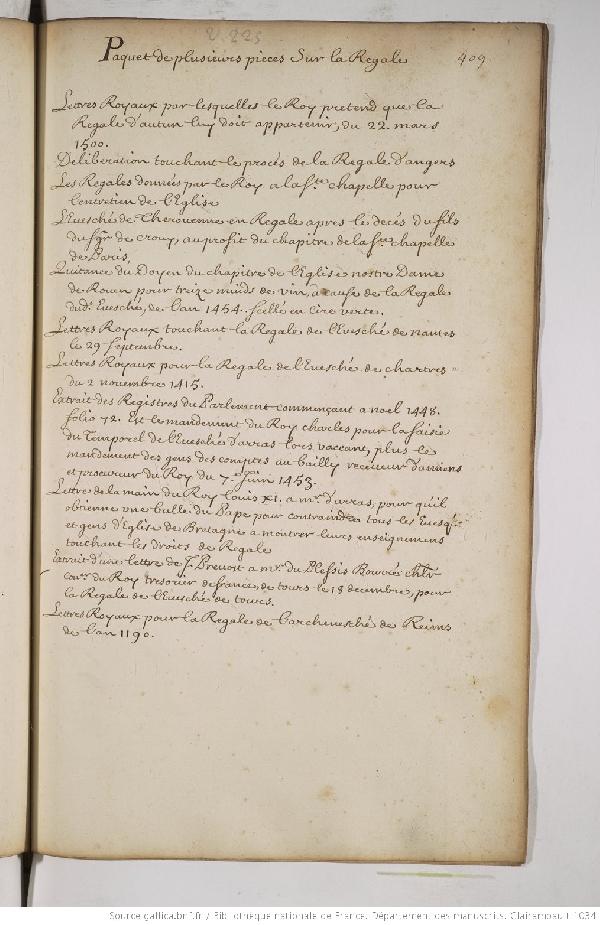 V. 223
Paquet de plusieurs pieces Sur la Regale
409
Lettres Royaux par lesquelles le Roy pretend que la
Regale d'autun luy doit appartenir, du 22. mars
1500.
Deliberation touchant le procés de la Regale d'angers
Les Regales données par le Roy a la Ste chapelle pour
l'entretien de l'Eglise
L'Evesché de Therouenne en Regale apres le decés du fils
du Sgr de Crouy, au profit du chapitre de la Ste chapelle
de Paris.
Quitance du Doyen du chapitre de l'Eglise nostre Dame
de Rouen pour treize muids de vin, a cause de la Regale
dud. Evesché, de l'an 1454. scellé en cire verte.
Lettres Royaux touchant la Regale de l'Evesché de nantes
le 29 Septembre.
Lettres Royaux pour la Regale de l'Evesché de chartres
du 2 novembre 1415.
Extrait des Registres du Parlement commençant a noel 1448.
folio 72. Est le mandement du Roy charles pour la saisie
du Temporel de l'Evesché d'arras lors vaccant, plus le
mandement des gens des comptes au bailly receveur d'amiens
et procureur du Roy du 7. Juin 1453.
Lettre de la main du Roy Louis XI. a mr. d'arras, pour qu'il
obtienne une bulle du Pape pour contraindre tous les Evesq.
et gens d'Eglise de Bretagne a montrer leurs enseignemens
touchant les droits de Regale
Extrait d'une lettre de J. Prevost a mr. du Plessis Bourré chlr
conr. du Roy tresorier de france, de tours le 18 decembre, pour
la Regale de l'Evesché de tours.
Lettres Royaux pour la Regale de l'archevesché de Reims
de l'an 1190.
Source gallica.bnf.fr / Bibliothèque nationale de France. Département des manuscrits. Clairambault 1034